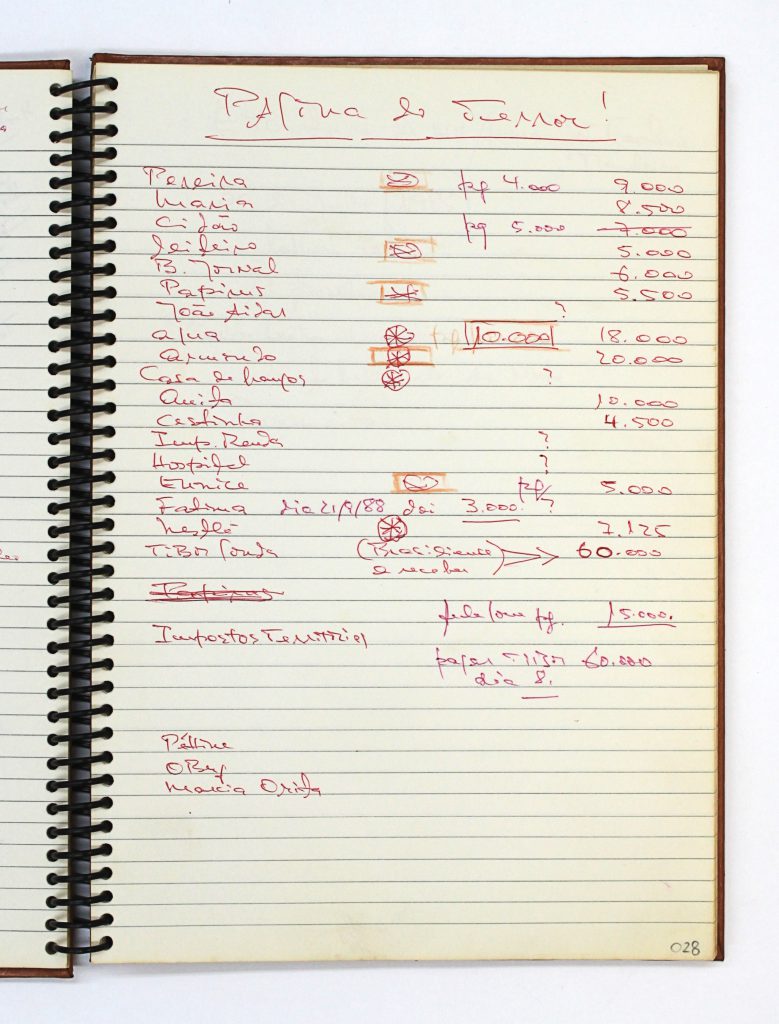 Página do Terror!
Pereira pg 4.000 9.000
Maria 8.500
Cidão pg 5.000 7.000
Leiteiro 5.000
B. Jornal 6.000
Papirus 5.500
João ?
agua pg 10.000 18.000
Armando 20.000
Casa de frangos ?
Anita 10.000
Cestinha 4.500
Imp. Renda ?
Hospital ?
Eunice pg 5.000
Fatima dia 21/9/88 dei 3.000. ?
Nestlé 7.125
Tibor (Brasiliense 60.000
a receber
Papirus
telefone pg. 15.000.
Impostos Territorial
pagar Tibor 60.000
dia 8.
Marcia
028